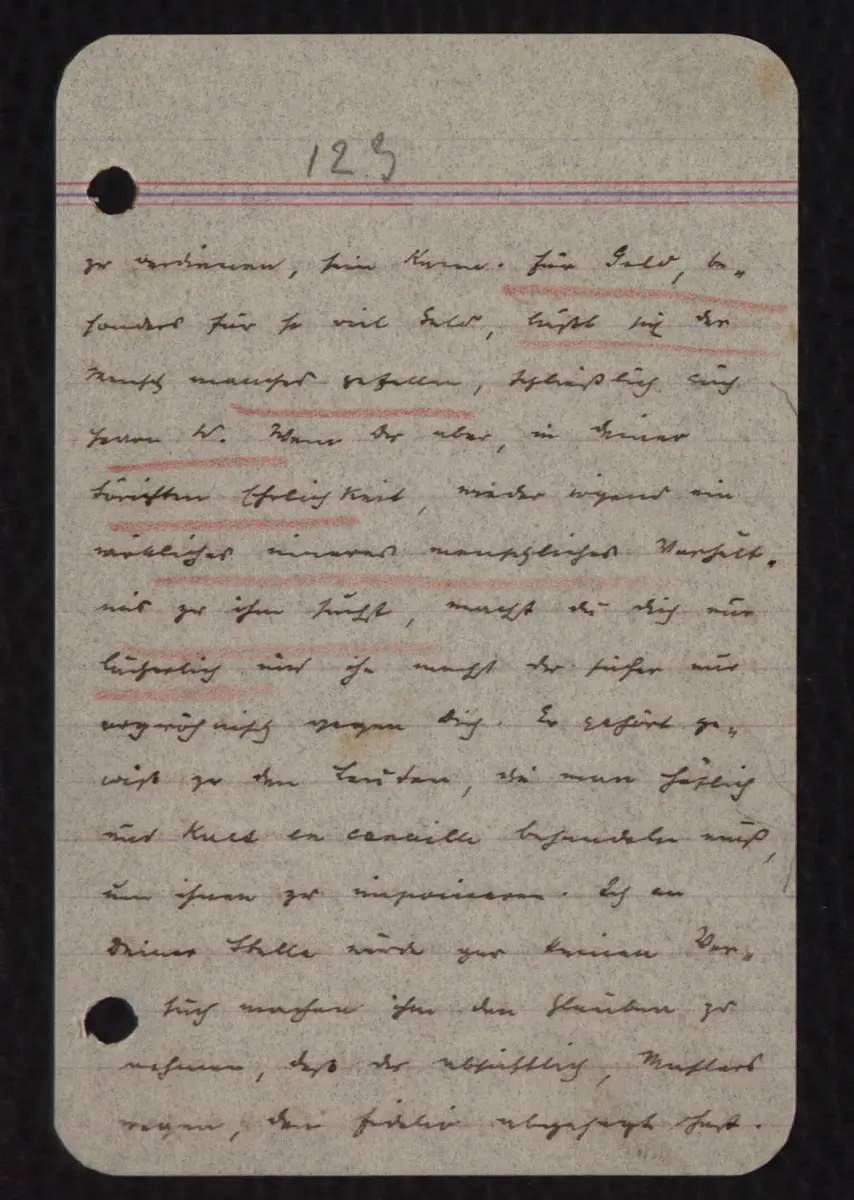 123
zu verdienen, sein Kerne. Für Geld, be„
sonders für so viel Geld, läßt sich der
Mensch manches gefallen, schließlich auch
Herrn W. Wenn du aber, in deiner
törichten Ehrlichkeit, wieder irgend ein
wirkliches inneres menschliches Verhält„
nis zu ihm suchst, machst du dich nur
lächerlich und ihn machst du sicher nur
argwöhnisch gegen Dich. Er gehört ge„
wiß zu den Leuten, die man höflich
und kalt en canaille behandeln muß,
um ihnen zu imponieren. Ich an
Deiner Stelle würde gar keinen Ver„
such machen ihm den Glauben zu
nehmen, daß du absichtlich, Mahlers
wegen, den Fidelio abgesagt hast.